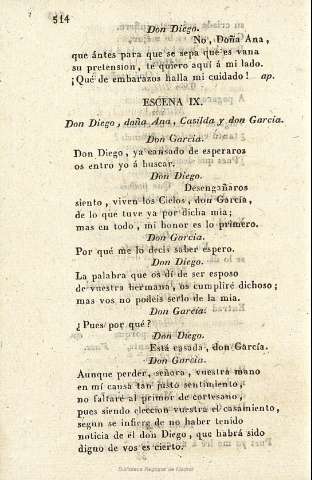 514
Don Diego.
No, Doña Ana,
que ántes para que se sepa qué es vana
su pretension, te quiero aquí á mi lado.
¡Qué de embarazos halla mi cuidado! ap.
ESCENA IX.
Don Diego, doña Ana, Casilda y don García.
Don García.
Don Diego, ya cansado de esperaros
os entro yo á buscar.
Don Diego.
Desengañaros
siento, viven los Cielos, don García,
de lo que tuve ya por dicha mia;
mas en todo, mi honor es lo primero.
Don García.
Por qué me lo decis saber espero.
Don Diego.
La palabra que os dí de ser esposo
de vuestra hermana, os cumpliré dichoso;
mas vos no podeis serlo de la mia.
Don García.
¿Pues por qué?
Don Diego.
Está casada, don García.
Don García.
Aunque perder, señora, vuestra mano
en mí causa tan justo sentimiento,
no faltaré al primor de cortesano,
pues siendo eleccion vuestra el casamiento,
segun se infiere de no haber tenido
noticia de él don Diego, que habrá sido
digno de vos es cierto.
Biblioteca Regional de Madrid